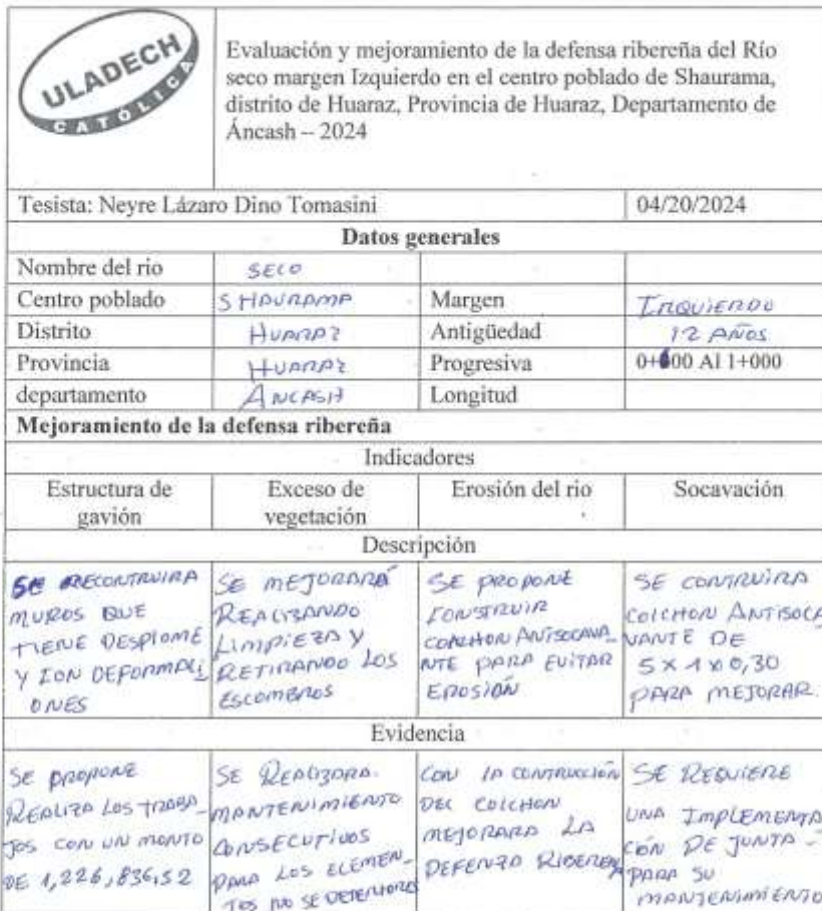 ULADECH
CATÓLICA
Evaluación y mejoramiento de la defensa ribereña del Río
seco margen Izquierdo en el centro poblado de Shaurama,
distrito de Huaraz, Provincia de Huaraz, Departamento de
Áncash – 2024
Tesista: Neyre Lázaro Dino Tomasini 04/20/2024
Datos generales
Nombre del rio SECO
Centro poblado SHAURAMA Margen IZQUIERDO
Distrito HUARAZ Antigüedad 12 AÑOS
Provincia HUARAZ Progresiva 0+000 Al 1+000
departamento ANCASH Longitud
Mejoramiento de la defensa ribereña
Indicadores
Estructura de
gavión
Exceso de
vegetación
Erosión del rio
Socavación
Descripción
SE RECONTRUIRA
MUROS QUE
TIENE DESPLOME
Y CON DEFORMACI
ONES
SE MEJORARÁ
REALIZANDO
LIMPIEZA Y
RETIRANDO LOS
ESCOMBROS
SE PROPONE
CONSTRUIR
COLCHON ANTISOCAVA_
NTE PARA EVITAR
EROSIÓN
SE CONTRUIRA
COLCHON ANTISOCA
VANTE DE
5 x 1 x 0,30
PARA MEJORAR.
Evidencia
SE PROPONE
REALIZA LOS TRABA_
JOS CON UN MONTO
DE 1,226,836,52
SE REALIZARA.
MANTENIMIENTO
CONSECUTIVOS
PARA LOS ELEMEN_
TOS NO SE DETERIORE
CON LA CONTRUCCIÓN
DEL COLCHON
MEJORARA LA
DEFENZA RIBEREÑA
SE REQUIERE
UNA IMPLEMENTA
CIÓN DE JUNTA -
PARA SU
MANTENIMIENTO